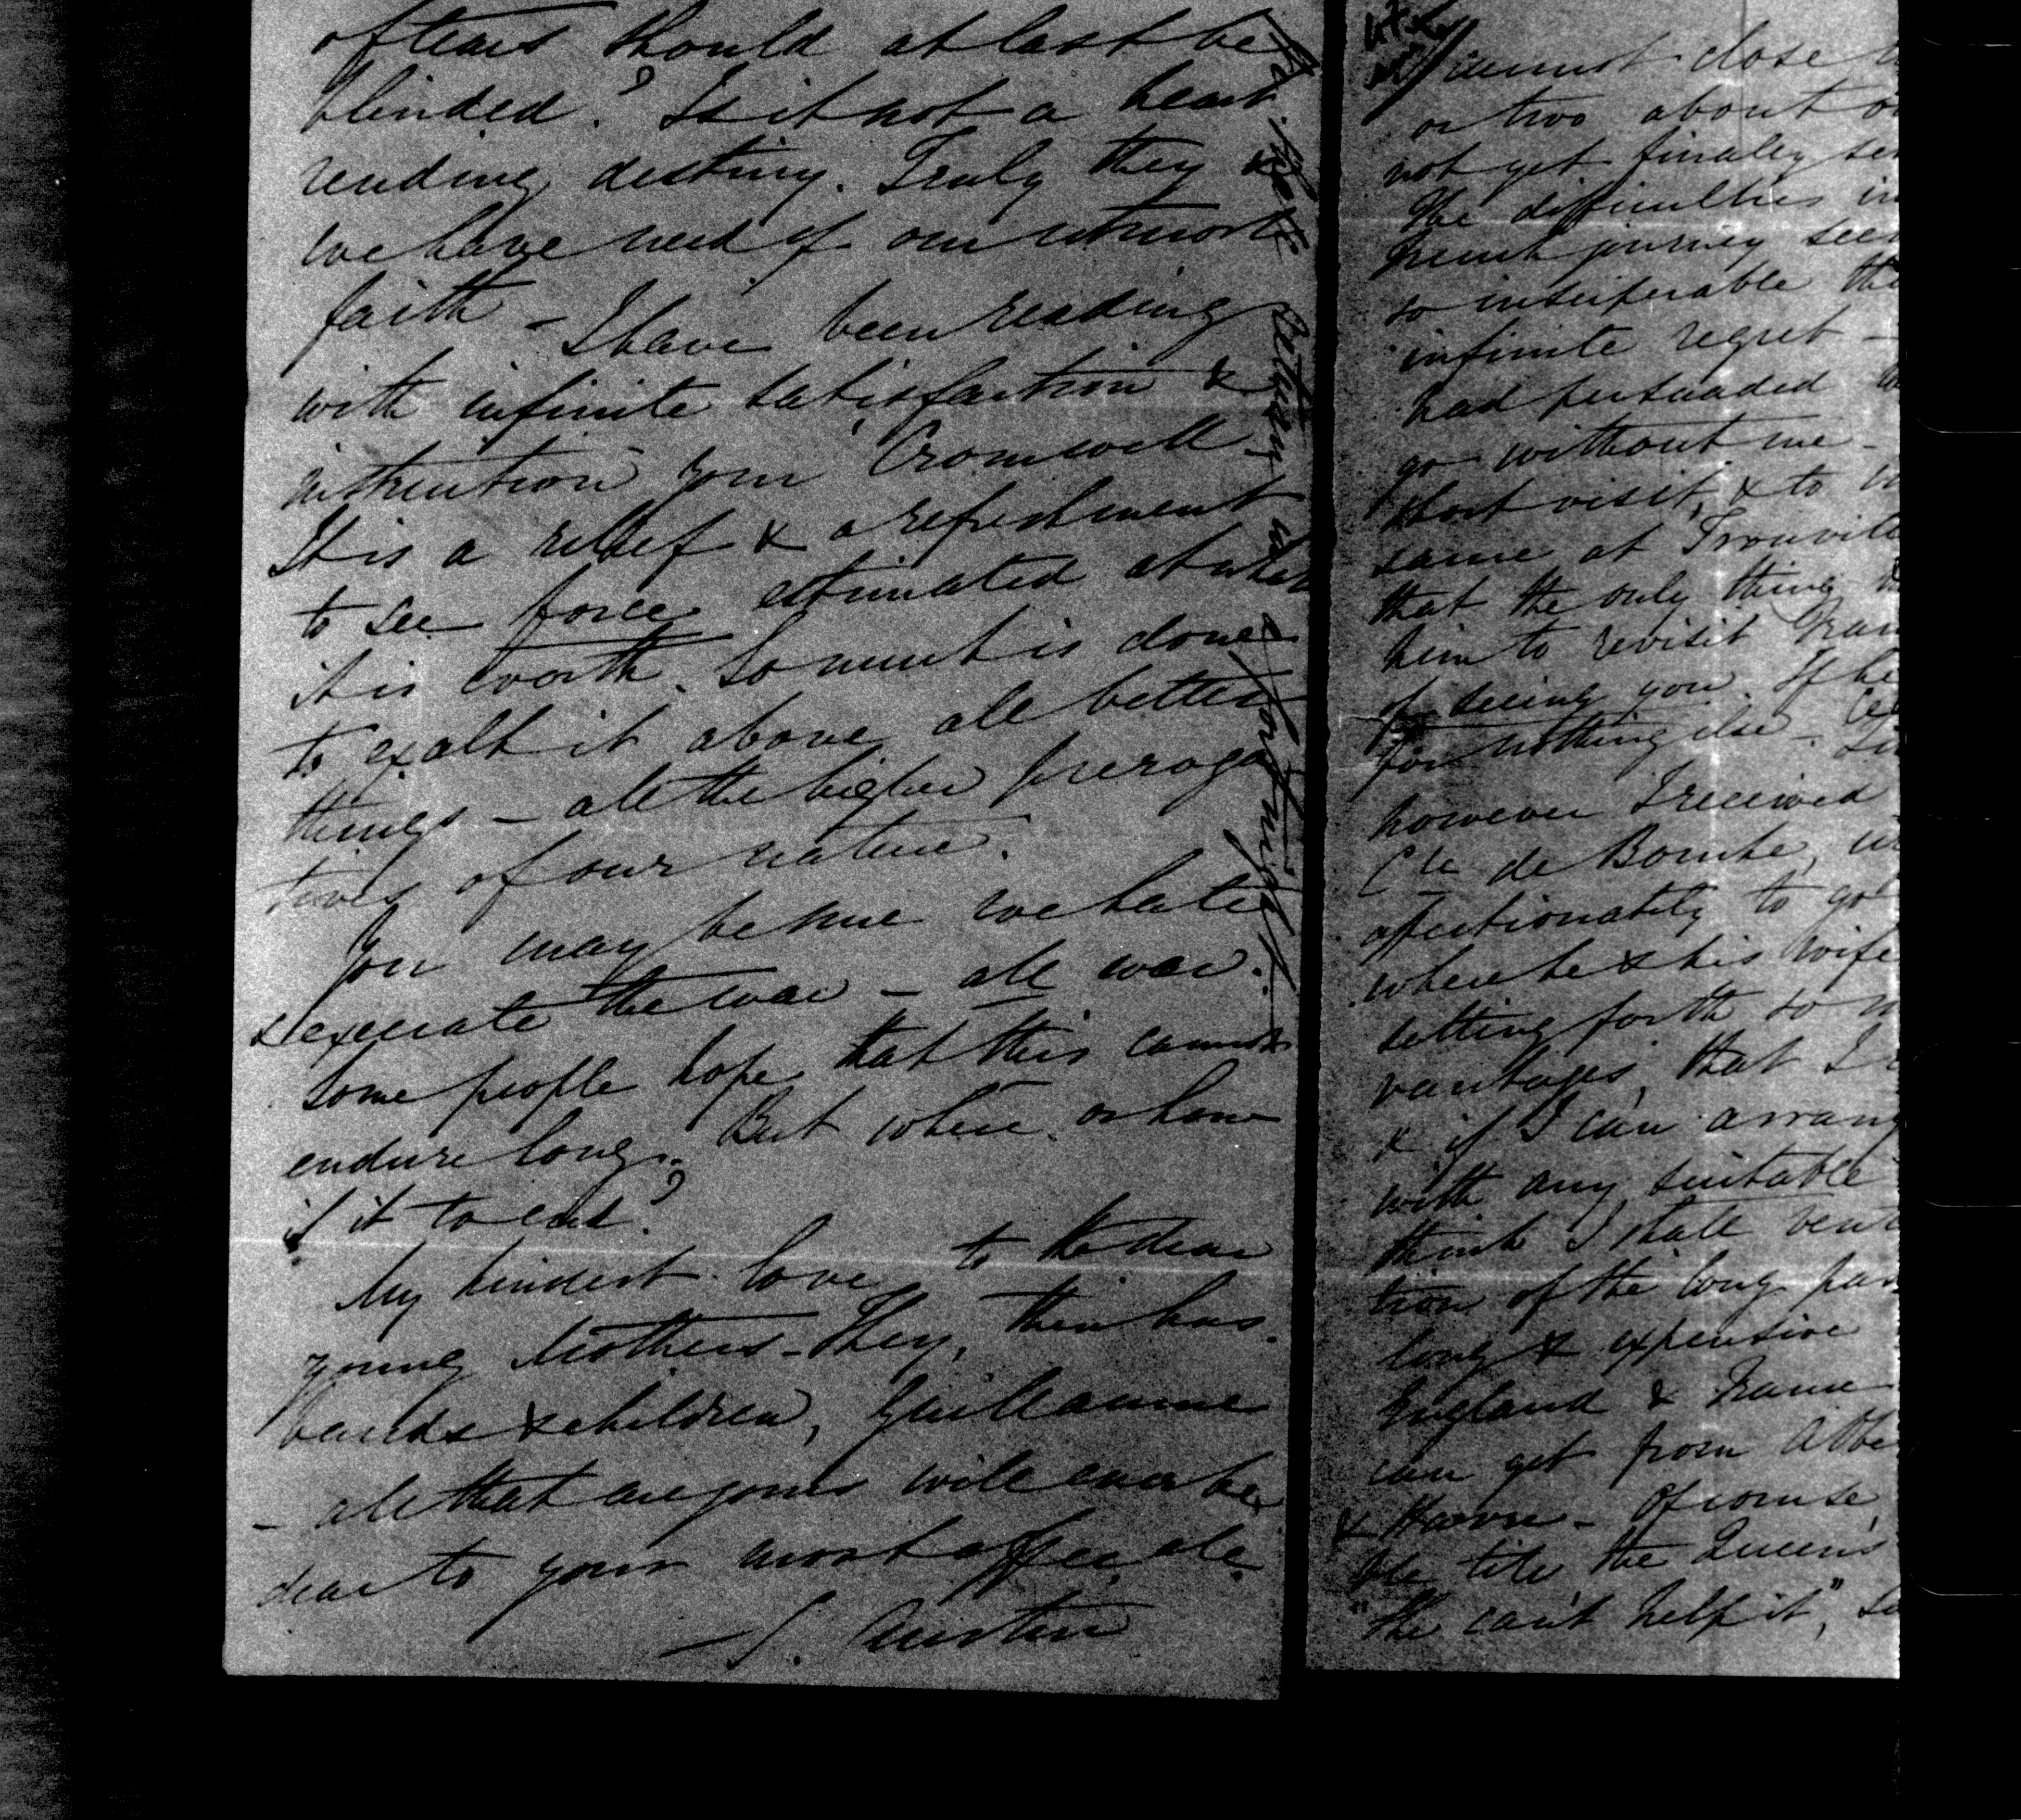 of tears should at last be
blinded? Is it not a heart
rending destiny. Truly they &
we have need of our utmost
faith – I have been reading
with infinite satisfaction &
instruction your Cromwell.
It is a relief & a refreshment
to see force estimated at what
it is worth. So much is done
to exalt it above all better
things – all the higher preroga
tives of our nature.
You may be sure we hate
& execrate the war – all war.
Some people hope that this cannot
endure long. But where or how
is it to end?
My kindest love to the dear
young Mothers – They, their hus
bands & children, Guillaume
– all that are yours will ever be
dear to your most affec
S. Austin
returning in
a fortnight
cannot close
or two about
not get finally
The difficulties in
French journey
so insuperable
infinite regret –
had persuaded
go without me –
short visit, & to
same at Trouvill
that the only thing
him to revisit Fran
of seeing you. If he
for nothing else –
however I received
Cte de
affectionately to go
where he & his wife
setting forth so
vantages, that I
& if I can arrang
with any suitable
think I shall vent
tion of the long pas
long & expensive
England & France
can get from
& Havre – Of course
ble till the Queen's
"She can't help it,"